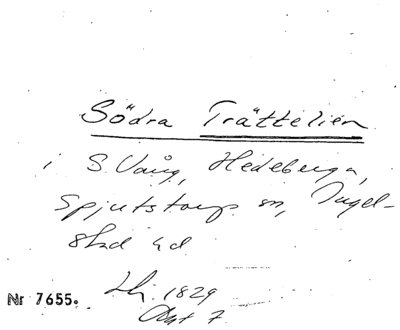 Södra Trättelien
i S. Vång, Hedeberga,
Spjutstorps sn, Ingel-
stad hd
Nr 7655. Lh. 1829
Akt 7